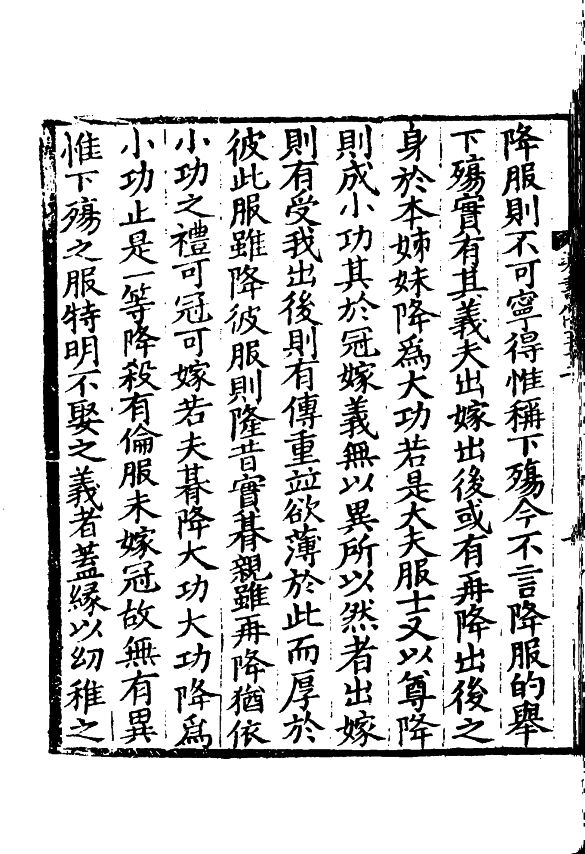 降服則不可寧得惟稱下殤今不言降服的舉
下殤實有其義夫出嫁出後或有再降出後之
身於本姊妹降爲大功若是大夫服士又以尊降
則成小功其於冠嫁義無以異所以然者出嫁
則有受我出後則有傳重並欲薄於此而厚於
彼此服雖降彼服則隆昔實朞親雖再降猶依
小功之禮可冠可嫁若夫朞降大功大功降爲
小功止是一等降殺有倫服末嫁冠故無有異
惟下殤之服特明不娶之義者蓋緣以幼稚之